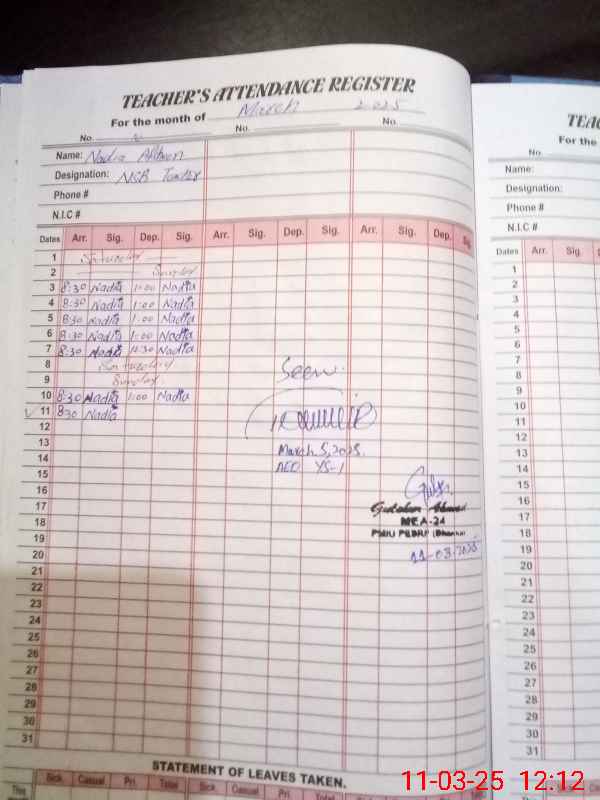 TEACHER'S ATTENDANCE REGISTER
For the month of March 2025
No. No. No.
Name: Nadia
Designation:
Phone #
N.I.C #
Dates Arr. Sig. Dep. Sig. Arr. Sig. Dep. Sig. Arr. Sig. Dep. Sig.
1 Saturday
2 Sunday
3 8:30 Nadia 1:00 Nadia
4 8:30 Nadia 1:00 Nadia
5 8:30 Nadia 1:00 Nadia
6 8:30 Nadia 1:00 Nadia
7 8:30 Nadia 12:30 Nadia
8 Saturday
9 Sunday
10 8:30 Nadia 1:00 Nadia
11 8:30 Nadia
12
13
14
15
16
17
18
19
20
21
22
23
24
25
26
27
28
29
30
31
Seen.
March 5, 2025.
AEO YS-1
MEA-24
11-03-2025
STATEMENT OF LEAVES TAKEN.
This Sick. Casual Pri. Total Sick. Casual Pri. Total Sick.
TEA
For the
No.
Name:
Designation:
Phone #
N.I.C #
Dates Arr. Sig.
1
2
3
4
5
6
7
8
9
10
11
12
13
14
15
16
17
18
19
20
21
22
23
24
25
26
27
28
29
30
31
11-03-25 12:12